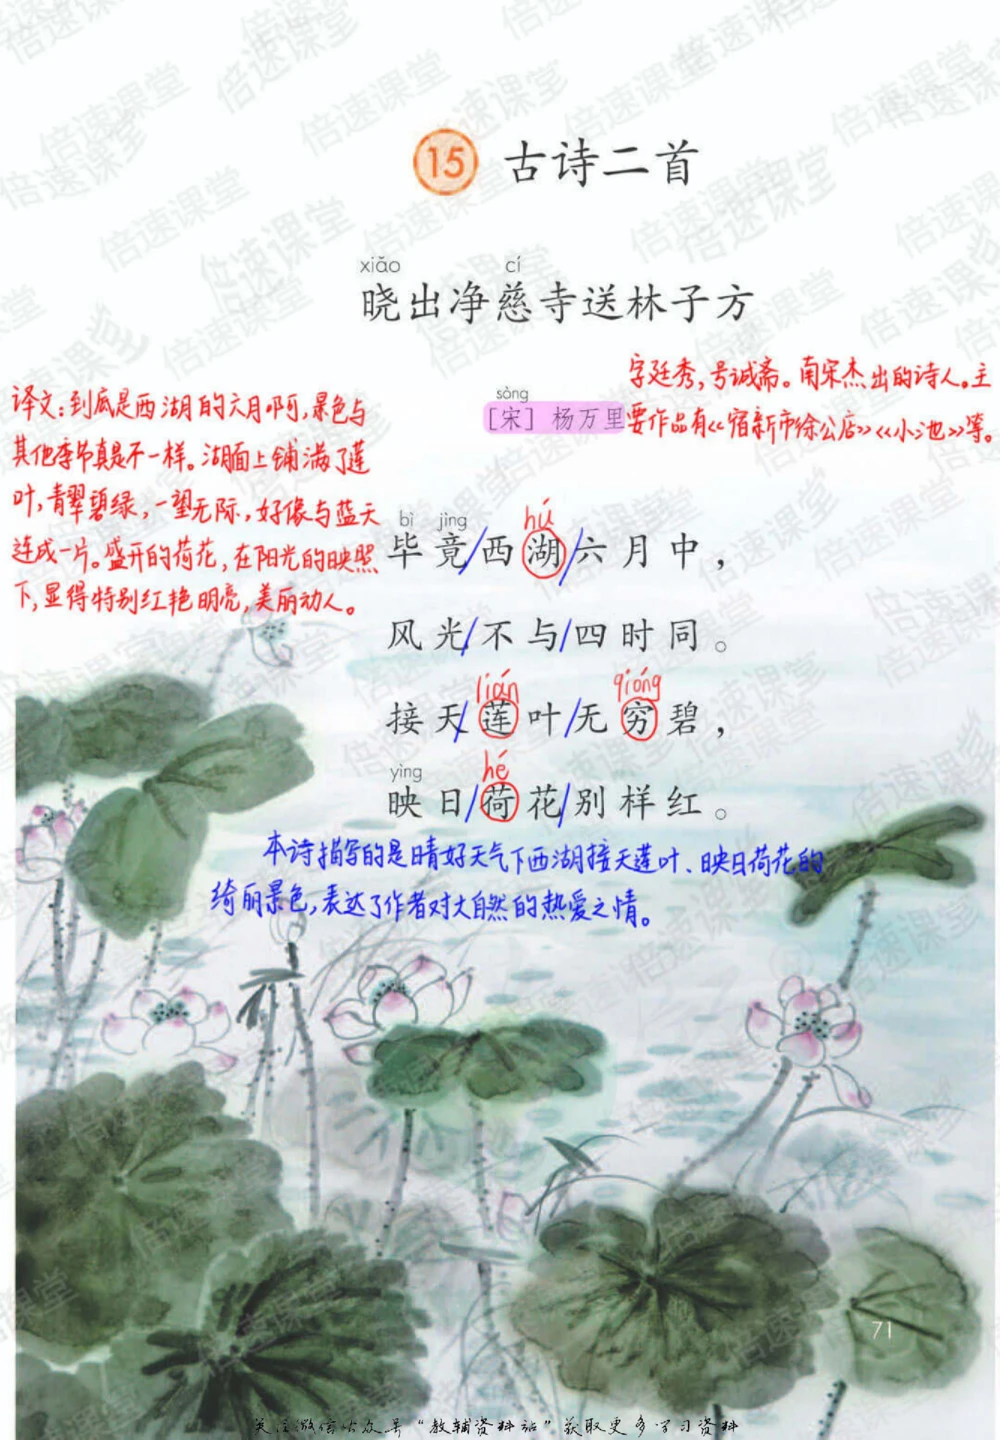 15 古诗二首
xiǎo cí
晓出净慈寺送林子方
字廷秀,号诚斋。南宋杰出的诗人。主
sòng
[宋] 杨万里
要作品有《宿新市徐公店》《小池》等。
译文:到底是西湖的六月啊,景色与
其他季节真是不一样。湖面上铺满了莲
叶,青翠碧绿,一望无际,好像与蓝天
连成一片。盛开的荷花,在阳光的映照
下,显得特别红艳明亮,美丽动人。
bì jìng hú
毕竟/西湖/六月中,
风光/不与/四时同。
lián qióng
接天/莲叶/无穷碧,
yìng hé
映日/荷花/别样红。
本诗描写的是晴好天气下西湖接天莲叶、映日荷花的
绮丽景色,表达了作者对大自然的热爱之情。
71
关注微信公众号“教辅资料站”获取更多学习资料
倍速课堂